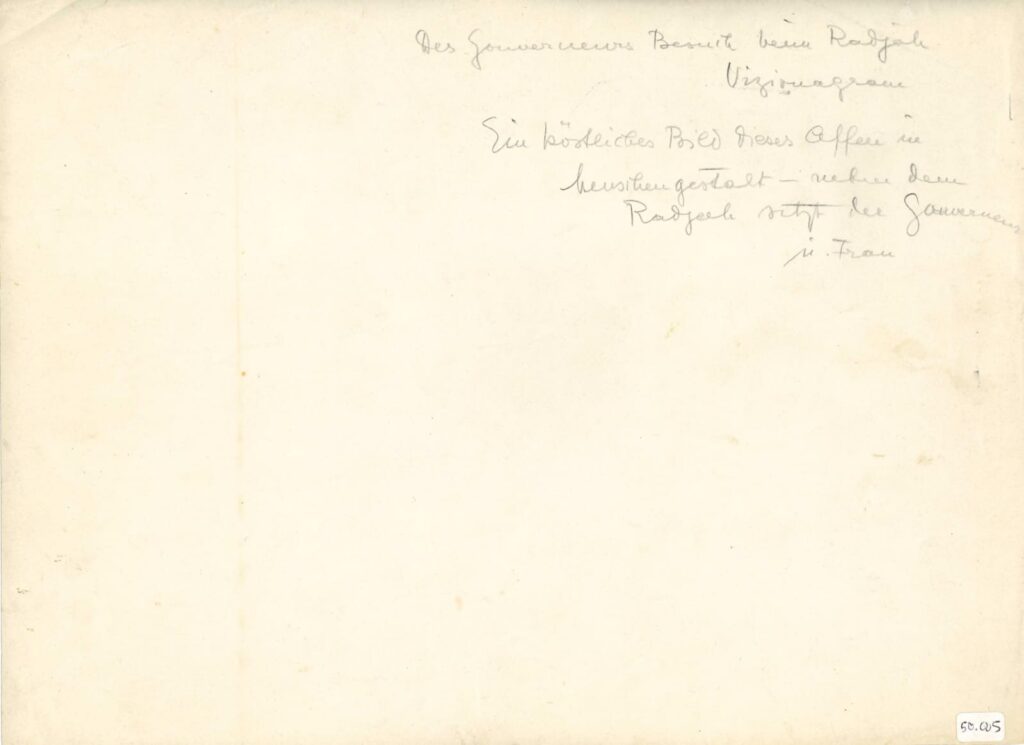 Des Gouverneurs Besuch beim Radjah
Vizianagram
Ein köstliches Bild dieses Affen in
Menschengestalt – neben dem
Radjah sitzt der Gouverneur
u. Frau
50.005